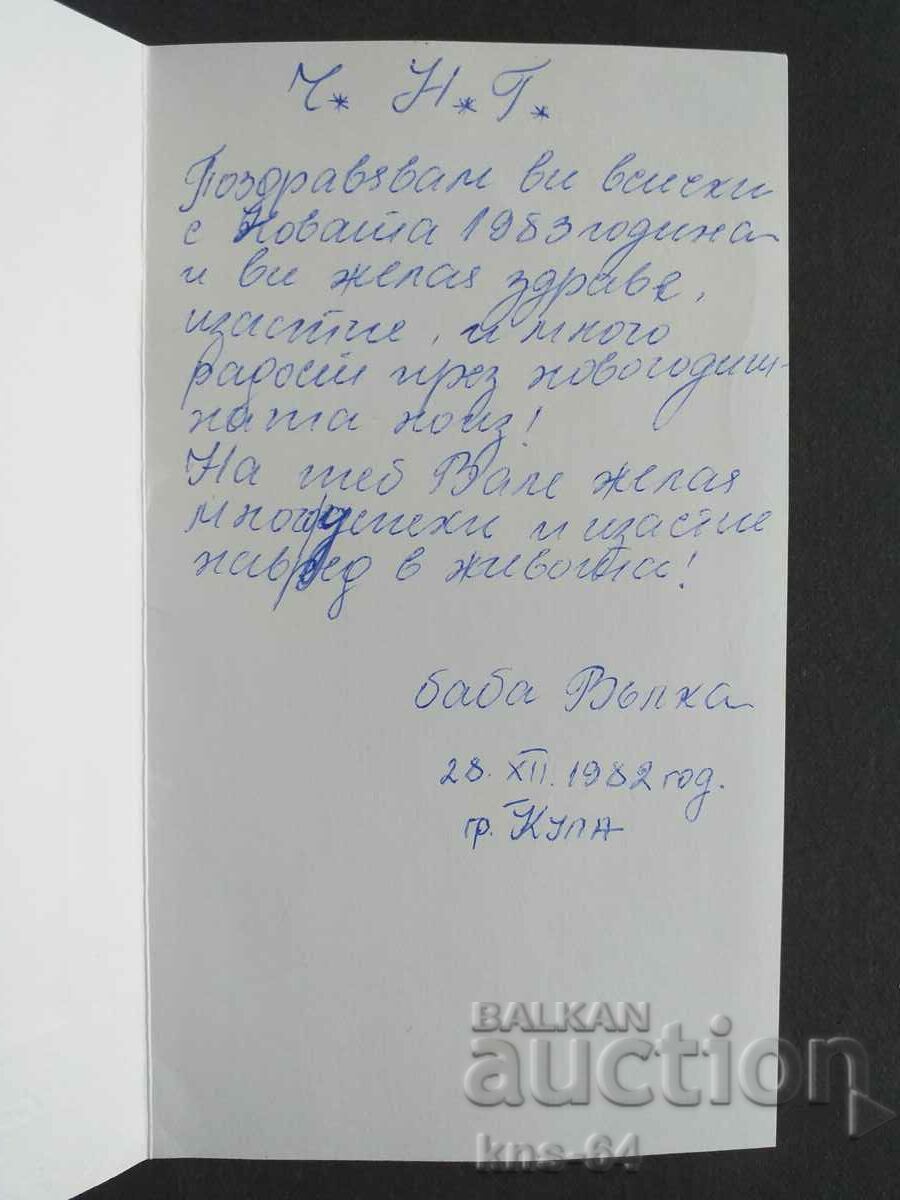 Ч. Н. Г.
Поздравявам ви всички
с Новата 1983 година
и ви желая здраве,
щастие, и много
радост през новогодиш-
ната нощ!
На теб Вале желая
много успехи и щастие
навред в живота!
баба Вълка
28. XII. 1982 год.
гр. Кула
BALKAN
auction
kns-64